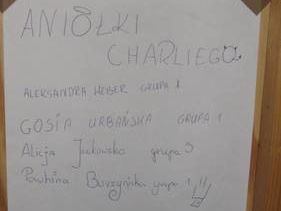 ANIOŁKI
CHARLIEGO
ALEKSANDRA HEBER GRUPA 1
GOSIA URBAŃSKA GRUPA 1
Alicja Jankowska grupa 3
Paulina Burzyńska grupa 1 !!